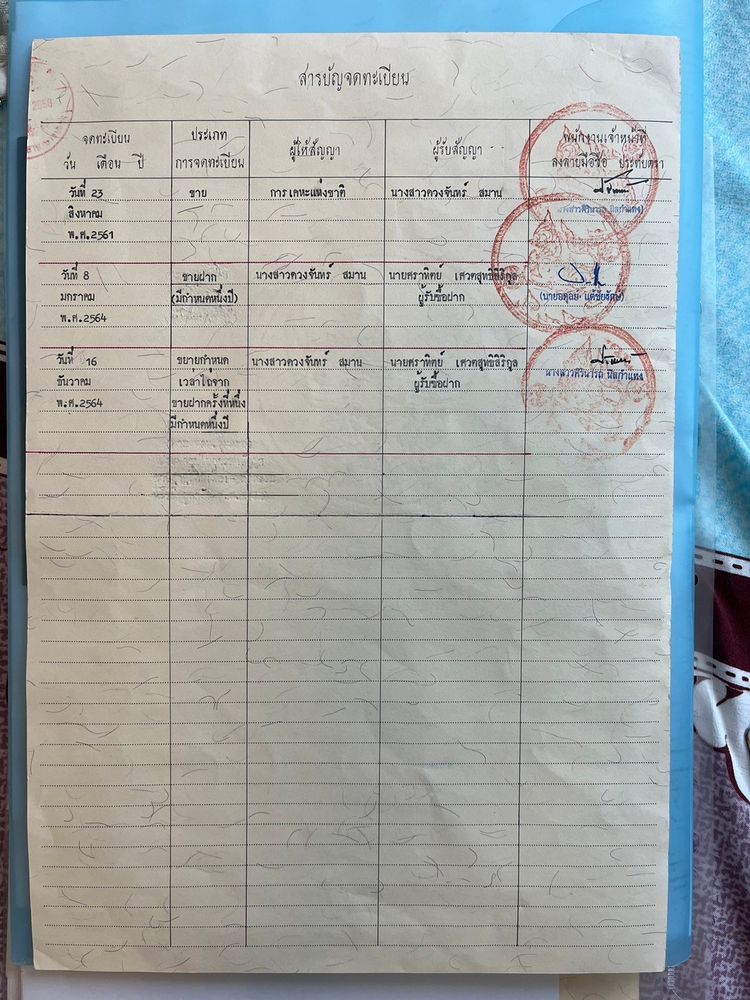 สารบัญจดทะเบียน
จดทะเบียน ประเภท ผู้ให้สัญญา ผู้รับสัญญา พนักงานเจ้าหน้าที่
วัน เดือน ปี การจดทะเบียน ลงลายมือชื่อ ประทับตรา
วันที่ 23 ขาย การเคหะแห่งชาติ นางสาวดวงจันทร์ สมาน
สิงหาคม
พ.ศ.2561
วันที่ 8 ขายฝาก นางสาวดวงจันทร์ สมาน นายศราทิตย์ เศวตสุทธิสิริกุล
มกราคม (มีกำหนดหนึ่งปี) ผู้รับซื้อฝาก
พ.ศ.2564
วันที่ 16 ขยายกำหนด นางสาวดวงจันทร์ สมาน นายศราทิตย์ เศวตสุทธิสิริกุล
ธันวาคม เวลาไถ่จาก ผู้รับซื้อฝาก
พ.ศ.2564 ขายฝากครั้งที่หนึ่ง
มีกำหนดหนึ่งปี